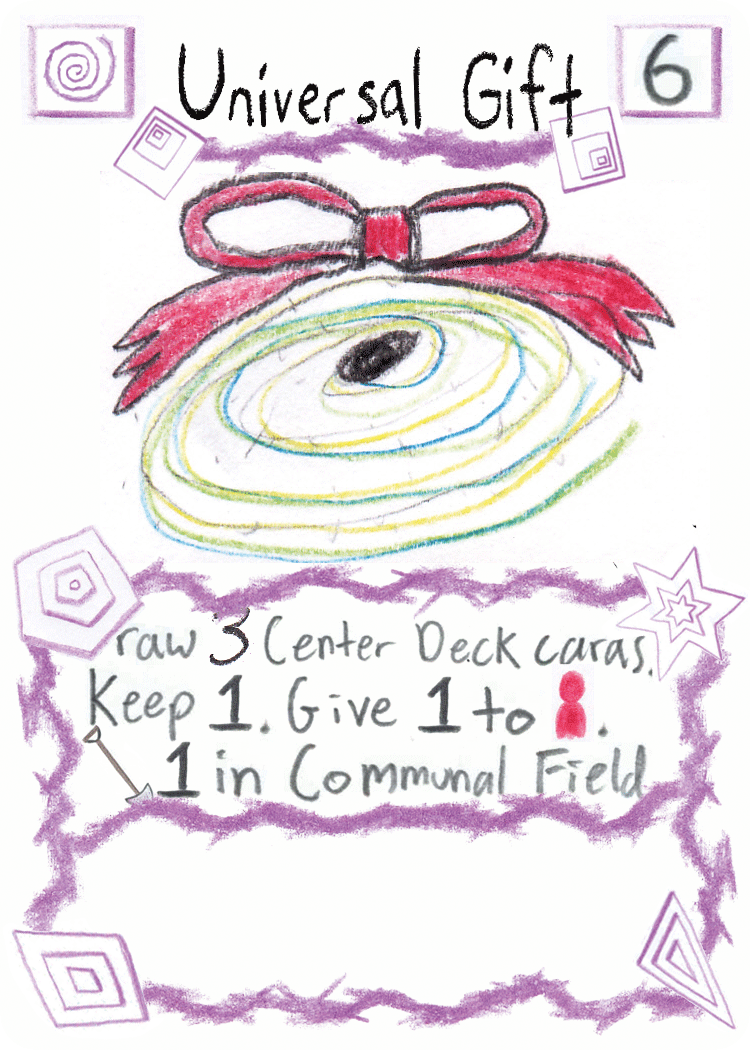 Universal Gift
6
raw 3 Center Deck caras.
Keep 1. Give 1 to .
1 in Communal Field